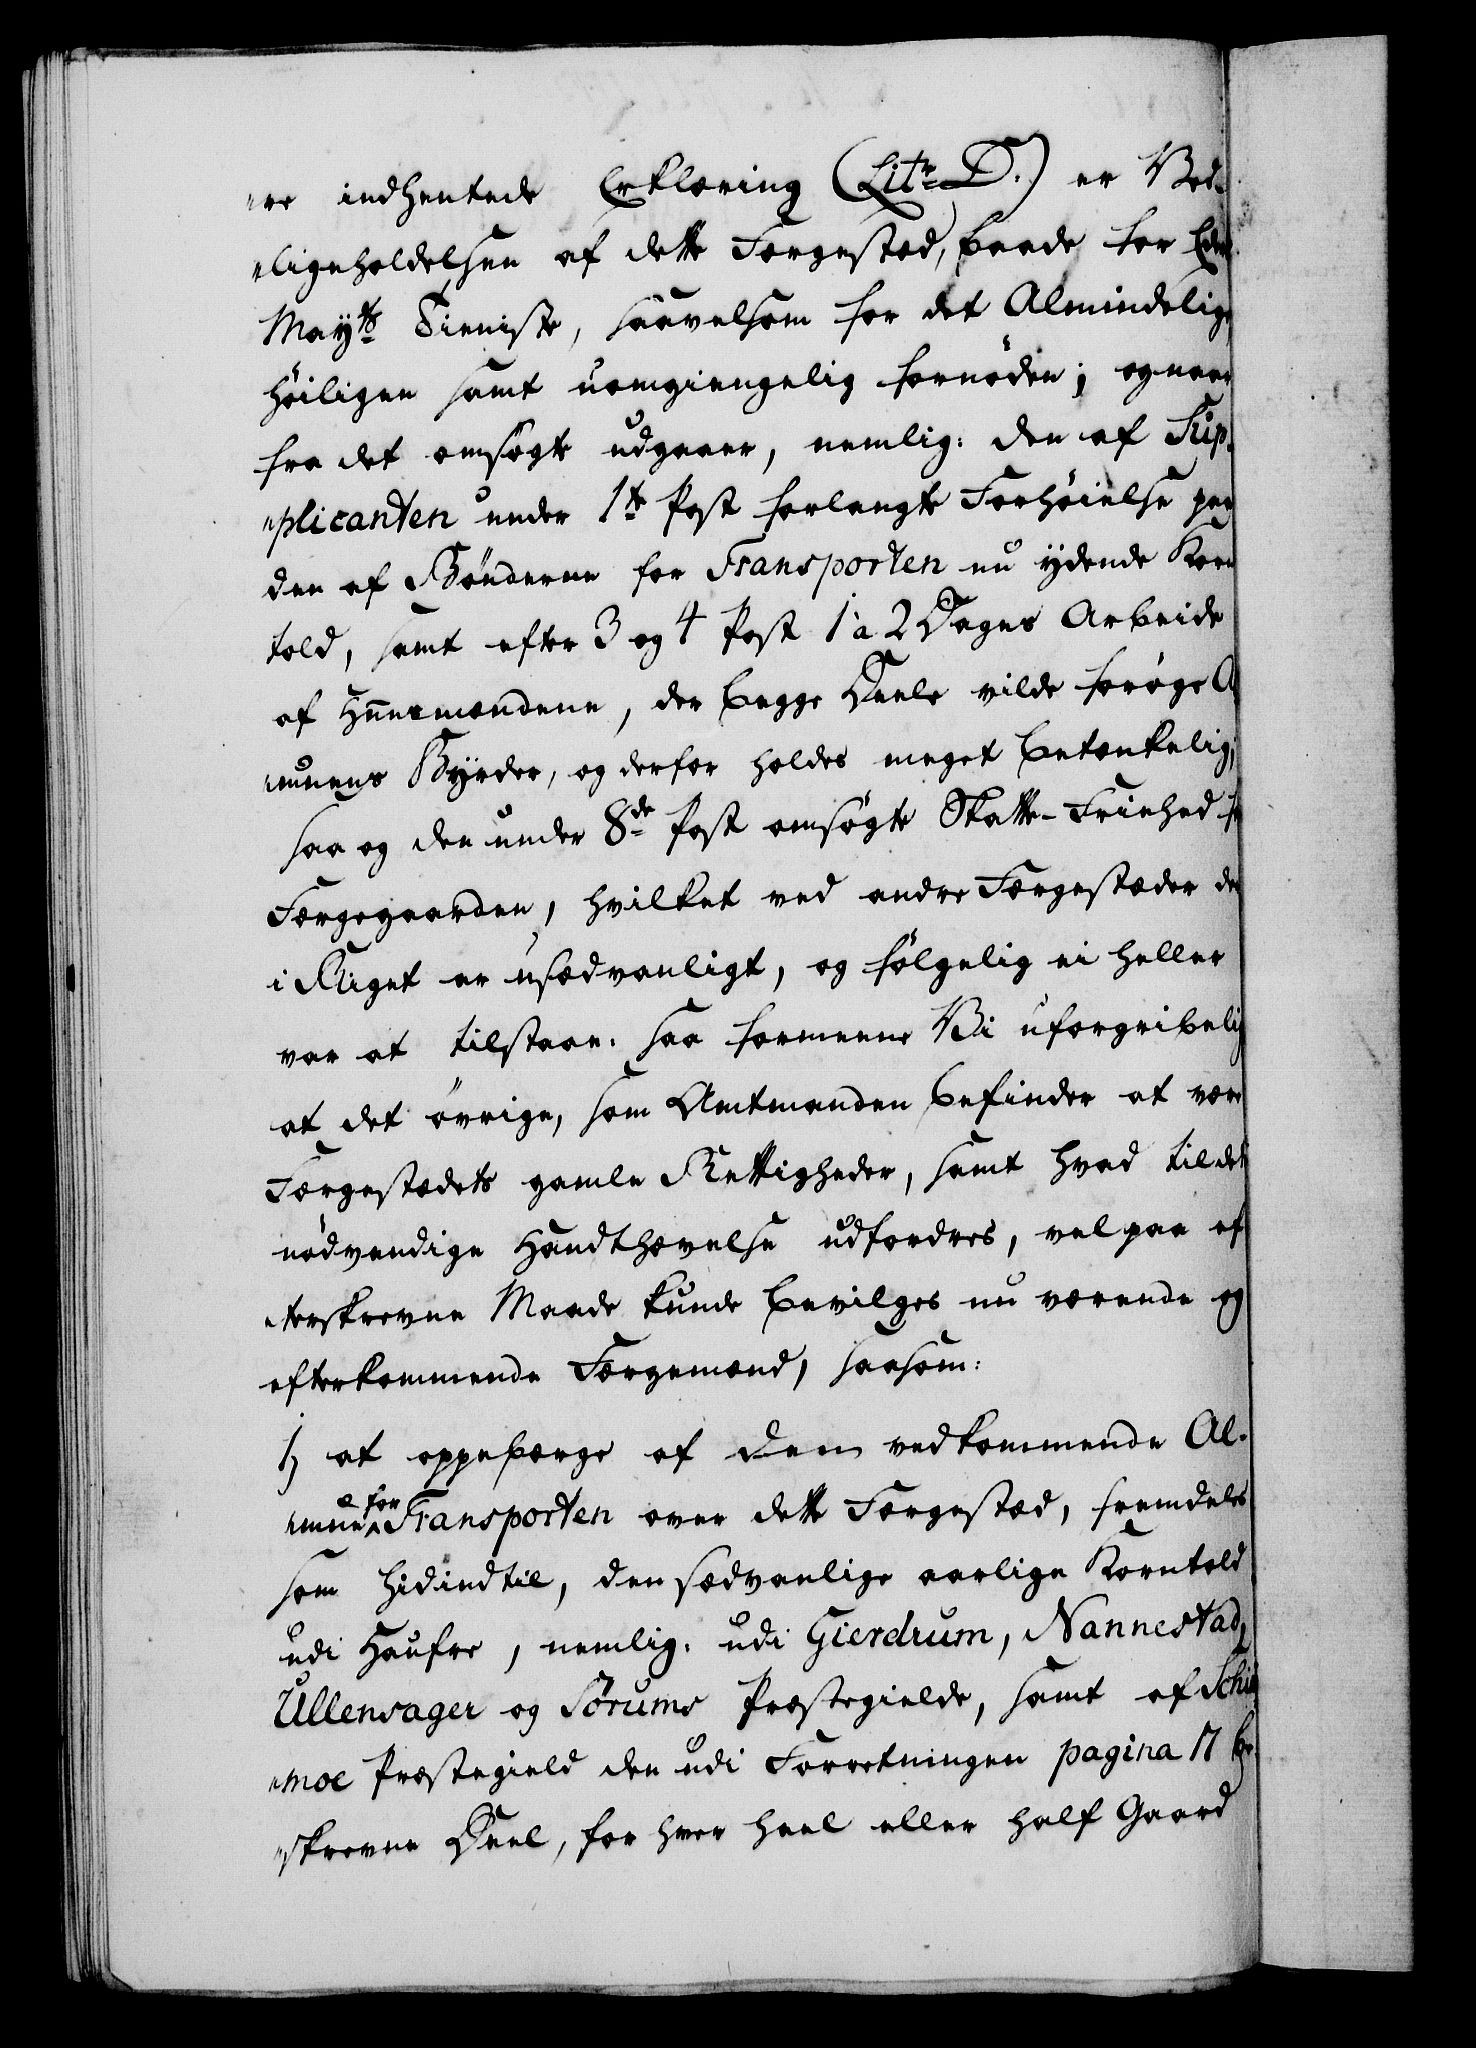 "re indhentede Erklæring (Litr D.) er Ved-
"ligeholdelsen af dette Færgestæd, baade for Eders
Mayts Tieniste, saavelsom for det Almindelige
höiligen samt uomgiengelig fornöden; og naar
fra det omsögte udgaaer, nemlig: den af Sup-
"plicanten under 1te Post forlangte Forhöielse paa
den af Bönderne for Transporten nu ydende Korn
told, samt efter 3 og 4 Post 1 à 2 Dages Arbeide
af Huusmændene, der begge Deele vilde foröge Al
"muens Byrder, og derfor holdes meget betænkelig;
saa og den under 8de Post omsögte Skatte-Friehed for
Færgegaarden, hvilket ved andre Færgestæder der
i Riget er usædvanligt, og fölgelig ei heller
var at tilstaae. saa formeene Vi uforgribelig
at det övrige, som Amtmanden befinder at være
Færgestædets gamle Rettigheder, samt hvad til dets
nödvendige Handthævelse udfordres, vel paa ef
"terskrevne Maade kunde bevilges nu værende og
efterkommende Færgemænd, saasom:
1) at oppebærge af den vedkommende Al-
"mue for Transporten over dette Færgestæd, fremdeles
som hidindtil, den sædvanlige aarlige Korntold
udi Haufre, nemlig: udi Gierdrum, Nannestad,
Ullensager og Sörums Præstegielde, samt af Schie
"moe Præstegield den udi Forretningen pagina 17 be-
"skrevne Deel, for hver heel eller half Gaard